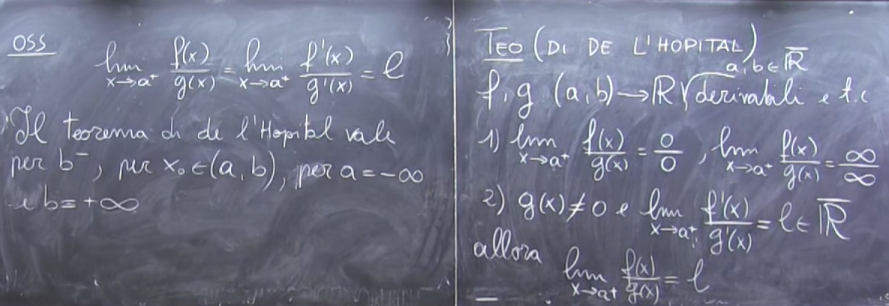 OSS
lim x→a⁺ f(x)/g(x) = lim x→a⁺ f'(x)/g'(x) = l
Il teorema di de l'Hopital vale
per b⁻, per x₀∈(a,b), per a=-∞
e b=+∞
TEO (DI DE L'HOPITAL)
a,b∈ℝ̅
f,g (a,b)→ℝ derivabili e t.c
1) lim x→a⁺ f(x)/g(x) = 0/0, lim x→a⁺ f(x)/g(x) = ∞/∞
2) g(x)≠0 e lim x→a⁺ f'(x)/g'(x) = l∈ℝ̅
allora lim x→a⁺ f(x)/g(x) = l